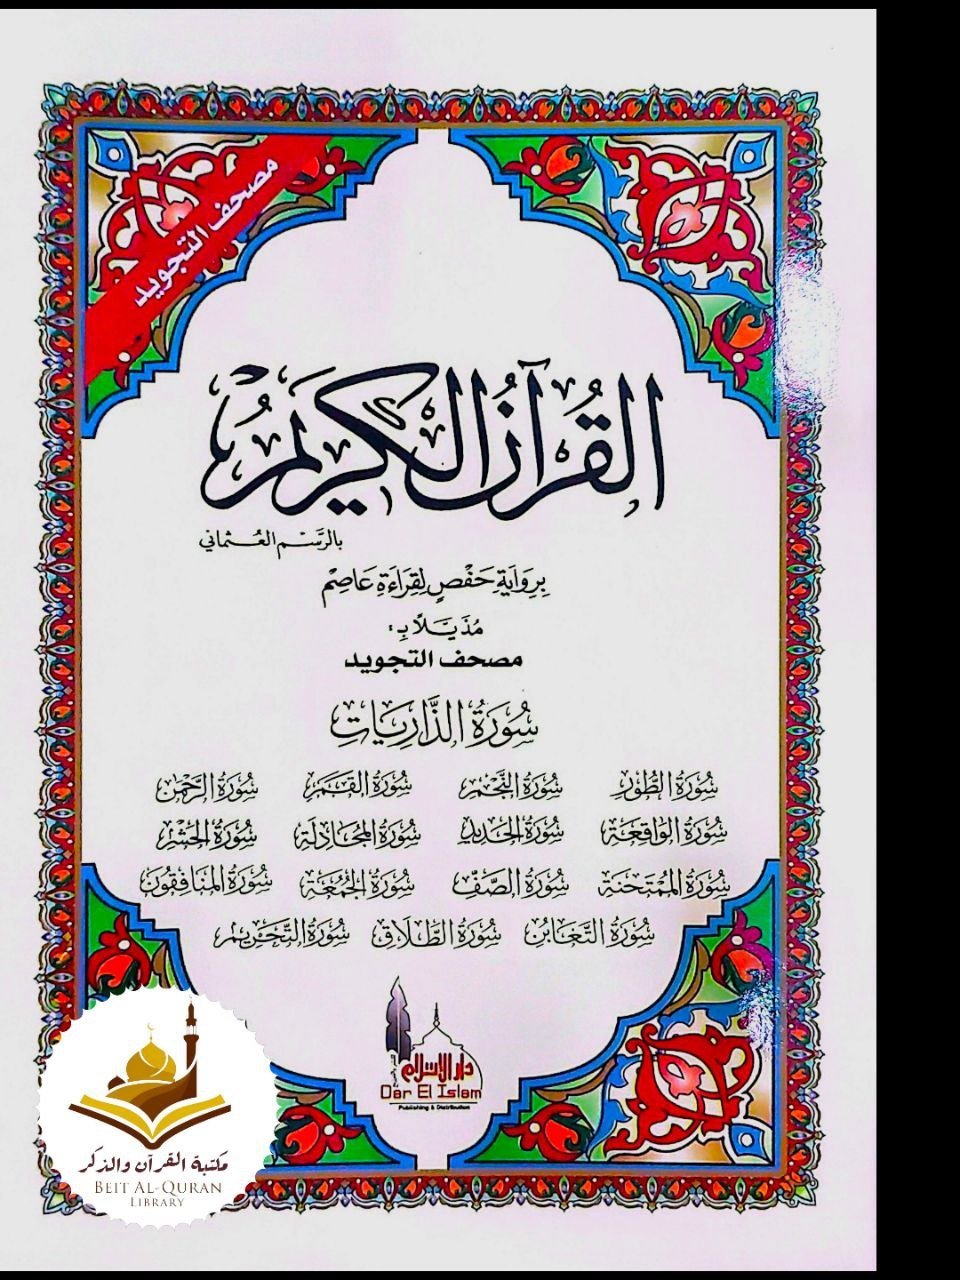 مصحف التجويد
القُرآنُ الكَرِيمُ
بالرَّسم العُثماني
بِرِوَايَةِ حَفْصٍ لِقِرَاءَةِ عَاصِمْ
مُذَيَّلًا بِ:
مصحف التجويد
سُورَةُ الذَّارِيَاتِ
سُورَةُ الطُّورِ سُورَةُ النَّجْمِ سُورَةُ القَمَرِ سُورَةُ الرَّحْمٰن
سُورَةُ الوَاقِعَةِ سُورَةُ الحَدِيدِ سُورَةُ المُجَادلَةِ سُورَةُ الحَشْرِ
سُورَةُ المُمْتَحنَةِ سُورَةُ الصَّفِّ سُورَةُ الجُمُعَةِ سُورَةُ المنَافِقُونَ
سُورَةُ التَّغَابُنِ سُورَةُ الطَّلَاقِ سُورَةُ التَّحْرِيمِ
دار الإسلام
Dar El Islam
Publishing & Distribution
مكتبة القرآن والذكر
BEIT AL-QURAN
LIBRARY